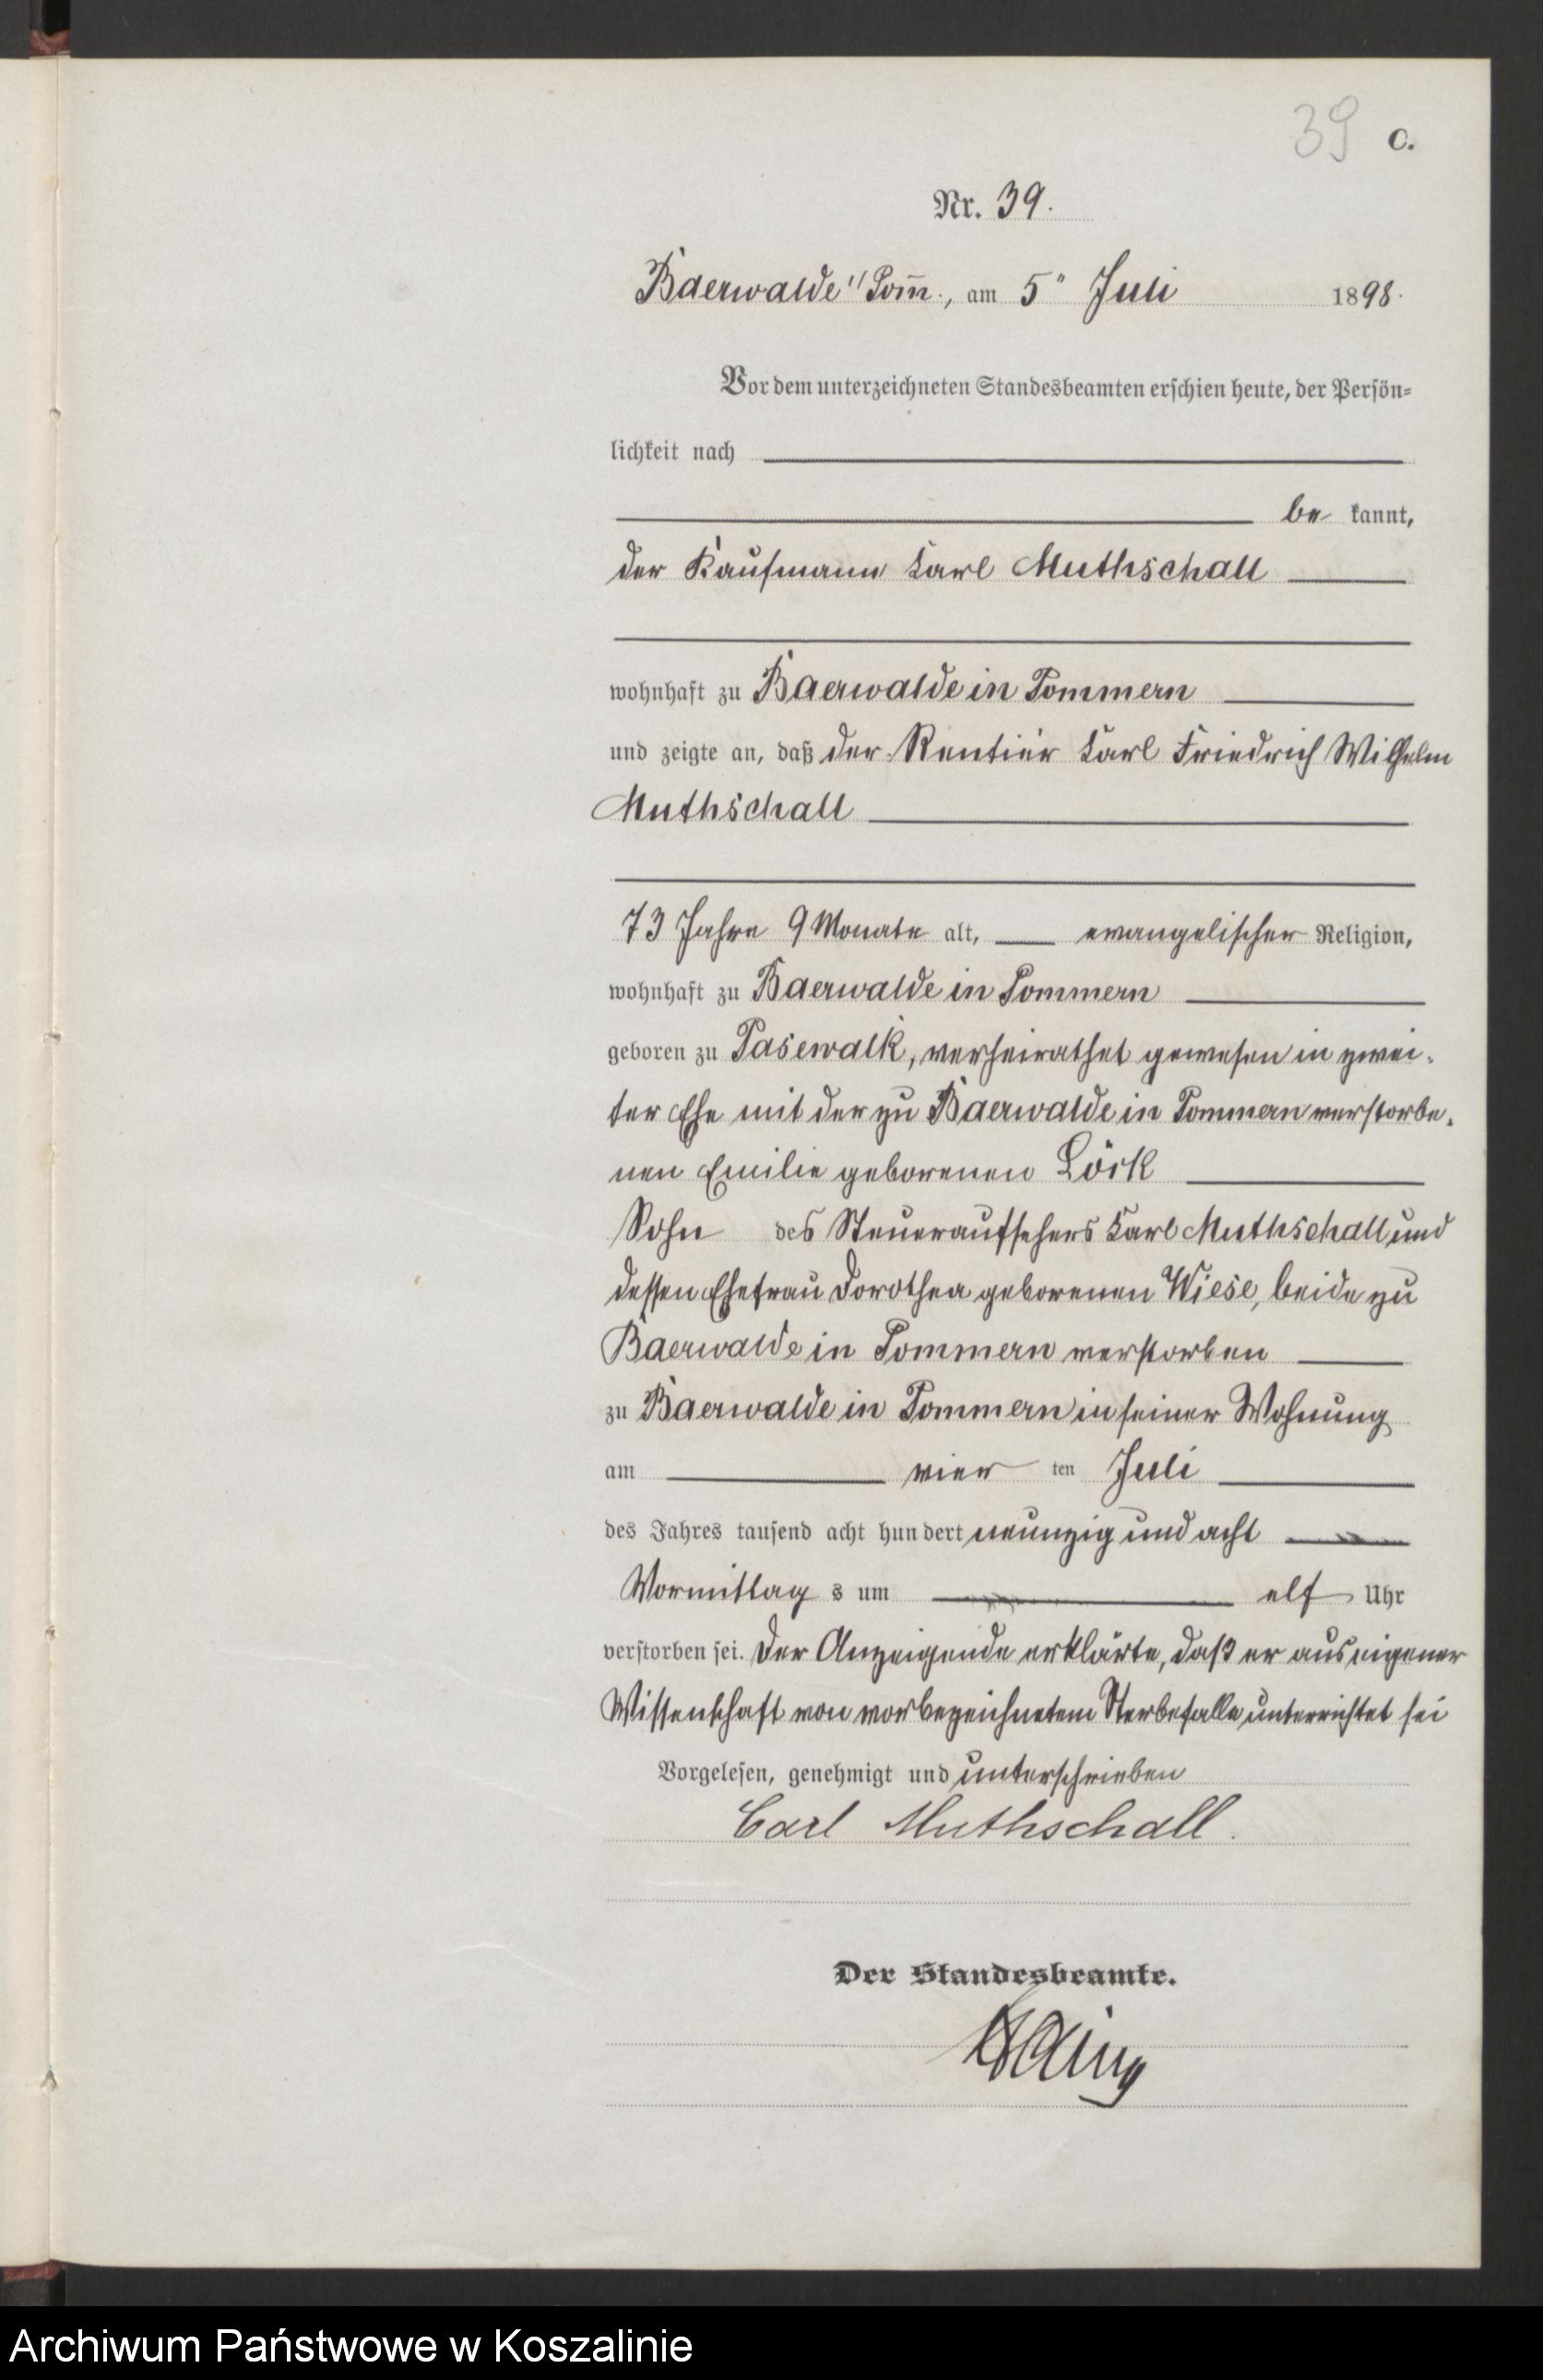 39 C.
Nr. 39.
Baerwalde i/ Pom̄., am 5ⁿ Juli 1898.
Vor dem unterzeichneten Standesbeamten erschien heute, der Persön-
lichkeit nach
be kannt,
der Kaufmann Karl Muthschall
wohnhaft zu Baerwalde in Pommern
und zeigte an, daß der Rentier Karl Friedrich Wilhelm
Muthschall
73 Jahre 9 Monate alt, evangelischer Religion,
wohnhaft zu Baerwalde in Pommern
geboren zu Pasewalk, verheirathet gewesen in zwei-
ter Ehe mit der zu Baerwalde in Pommern verstorbe-
nen Emilie geborenen Löck
Sohn des Steueraufsehers Karl Muthschall und
dessen Ehefrau Dorothea geborenen Wiese, beide zu
Baerwalde in Pommern verstorben
zu Baerwalde in Pommern in seiner Wohnung
am vier ten Juli
des Jahres tausend acht hundert neunzig und acht
Vormittag s um elf Uhr
verstorben sei. Der Anzeigende erklärte, daß er aus eigener
Wissenschaft von vorbezeichnetem Sterbefalle unterrichtet sei
Vorgelesen, genehmigt und unterschrieben
Carl Muthschall.
Der Standesbeamte.
Archiwum Państwowe w Koszalinie